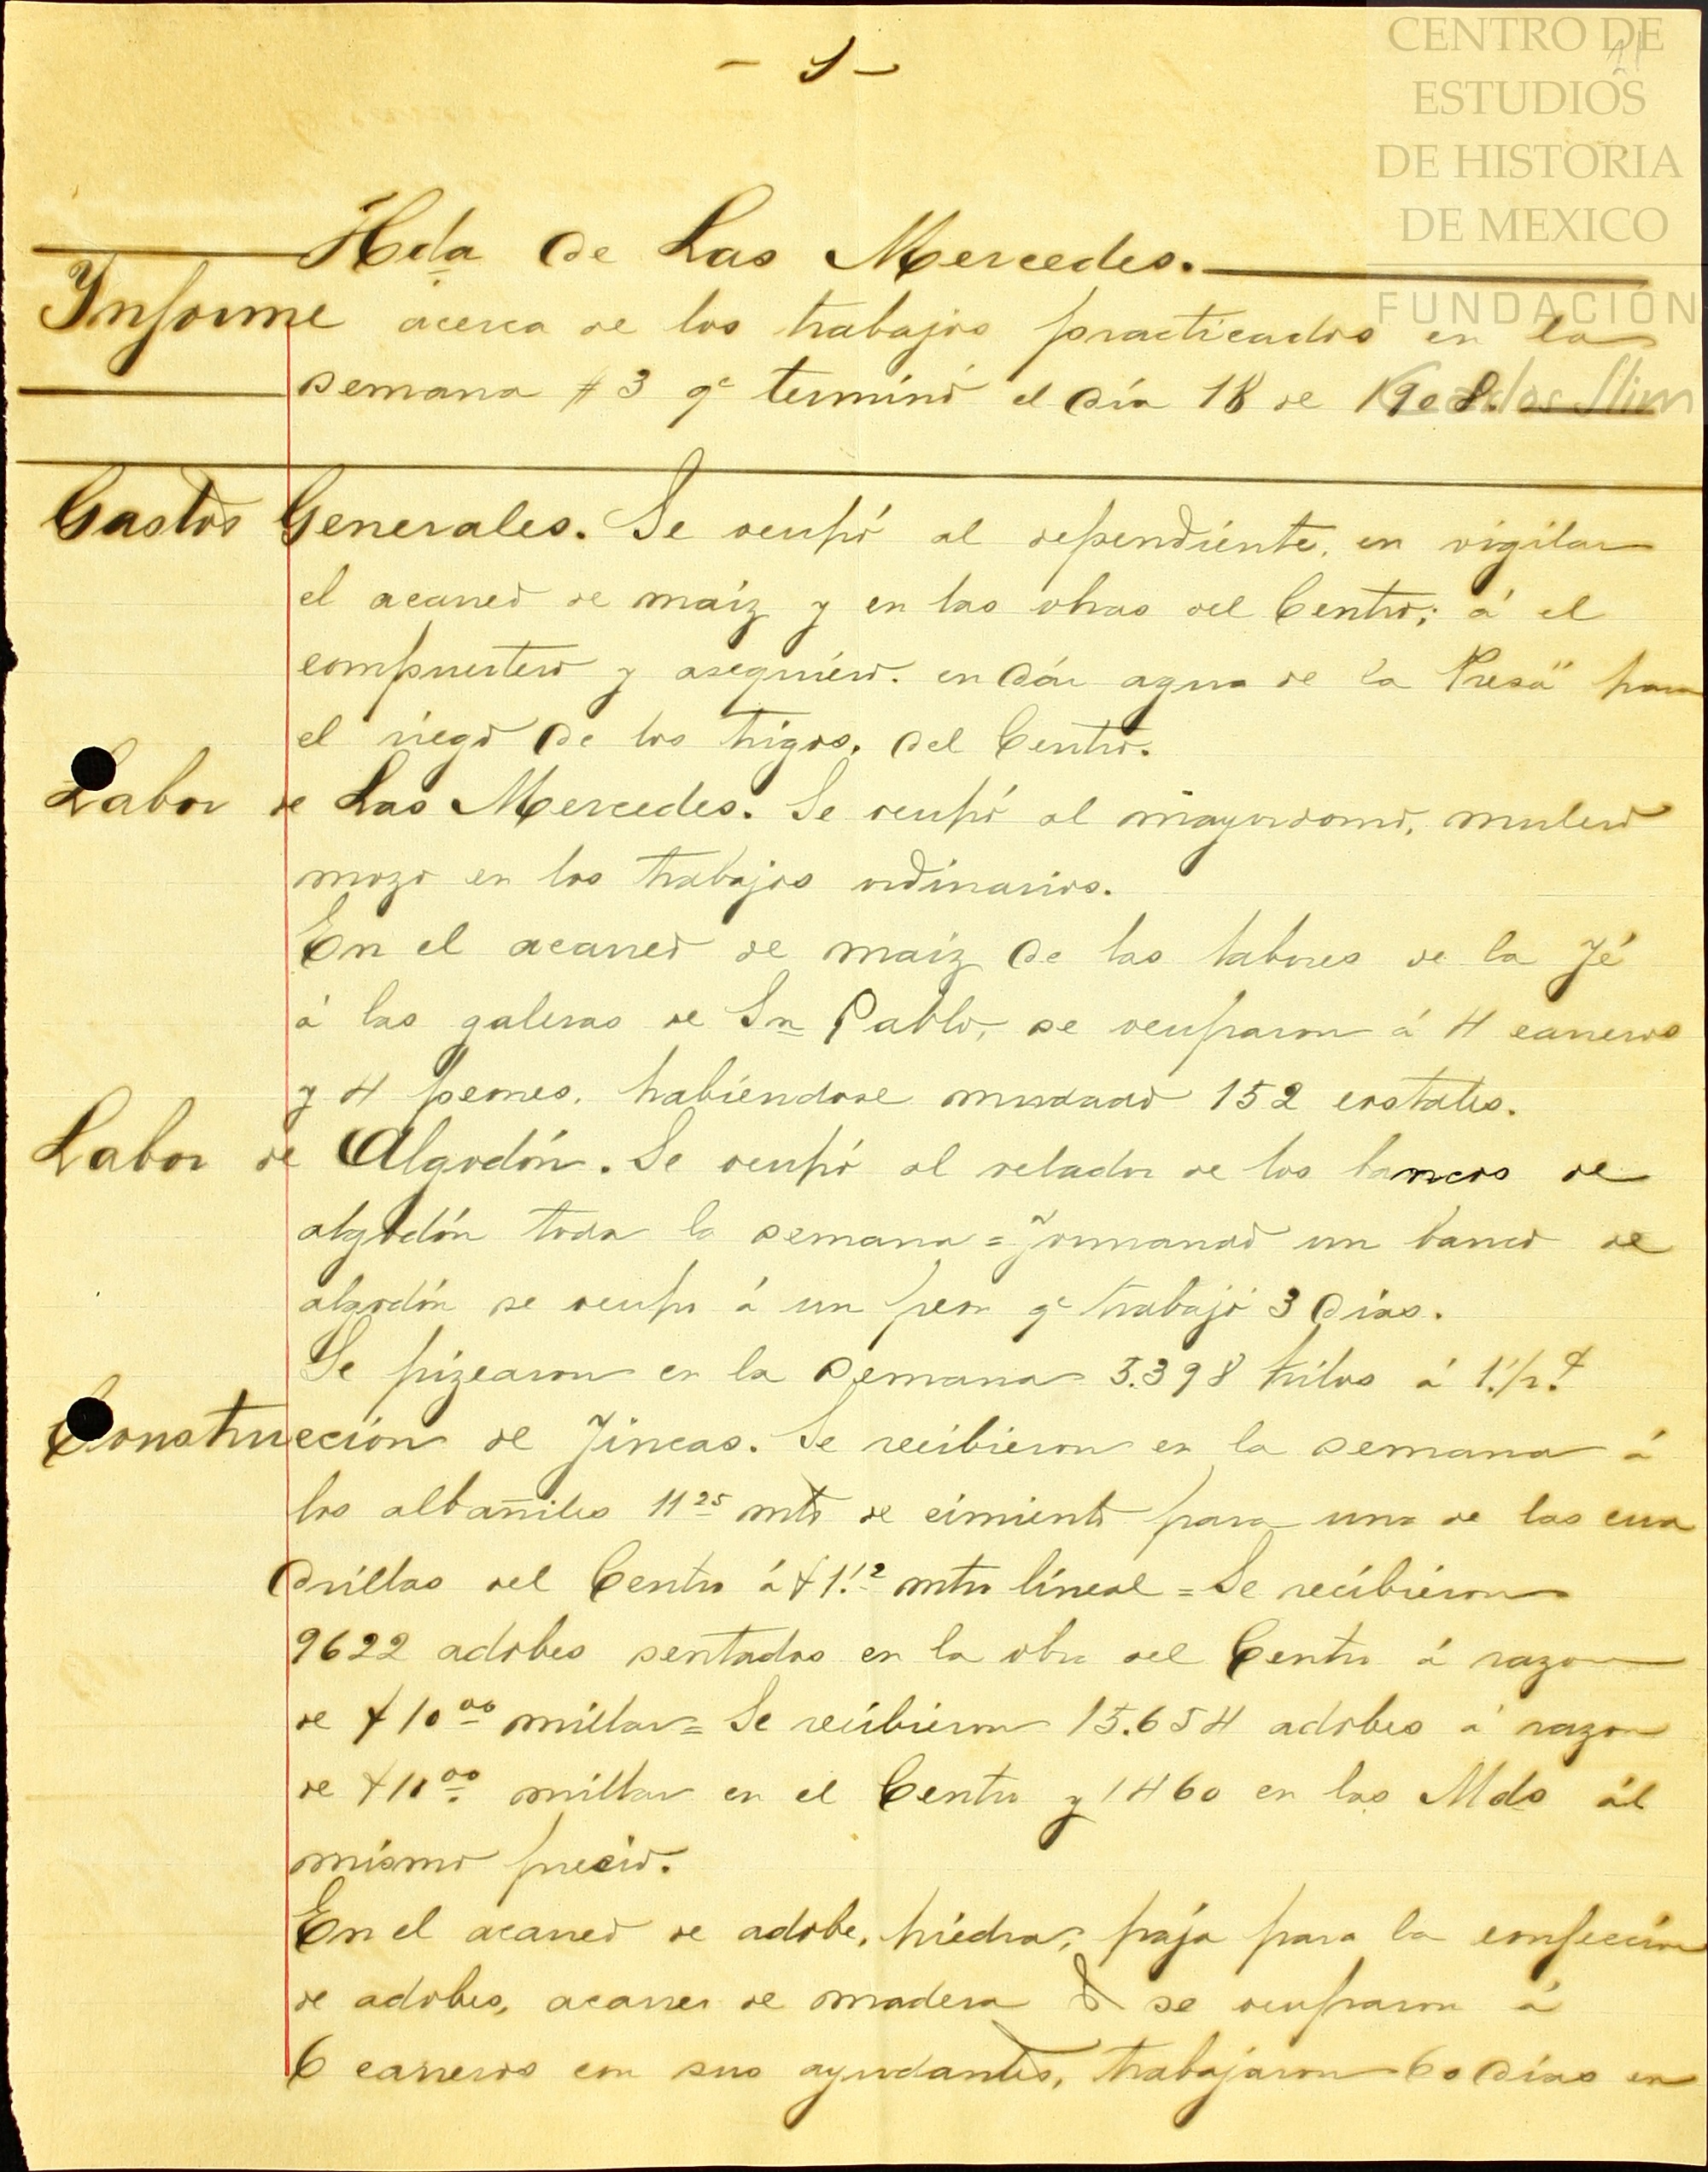 - 1 -
CENTRO DE
ESTUDIOS
DE HISTORIA
DE MEXICO
FUNDACIÓN
Carlos Slim
Hda de Las Mercedes.
Informe acerca de los trabajos practicados en la
semana # 3 qe terminó el día 18 de 1908.
Gastos Generales. Se ocupó al dependiente, en vigilar
el acarreo de maíz y en las obras del Centro; á el
compuertero y asequiero. en dár agua de la "Presa" para
el riego de los trigos, del Centro.
Labor de Las Mercedes. Se ocupó al mayordomo, mulero
mozo en los trabajos ordinarios.
En el acarreo de maíz de las labores de la Fé
á las galeras de Sn Pablo, se ocuparon á 4 carreros
y 4 peones, habiéndose mudado 152 costales.
Labor de Algodón. Se ocupó al velador de los bancos de
algodón toda la semana = Formando un banco de
algodón se ocupo á un peon qe trabajó 3 días.
Se pizcaron en la semana 5.398 kilos á 1.1/2.¢
Construcción de Fincas. Se recibieron en la semana á
los albañiles 11 25 mts de cimiento para una de las cua
drillas del Centro á $1.12 mtro líneal = Se recibieron
9622 adobes sentados en la obra del Centro á razon
de $10 00 millar = Se recibieron 15.654 adobes á razon
de $11 00 millar en el Centro y 1460 en las Mds ál
mismo precio.
En el acarreo de adobe, piedra, paja para la confección
de adobes, acarreo de madera & se ocuparon á
6 carreros con sus ayudantes, trabajaron 60 días en